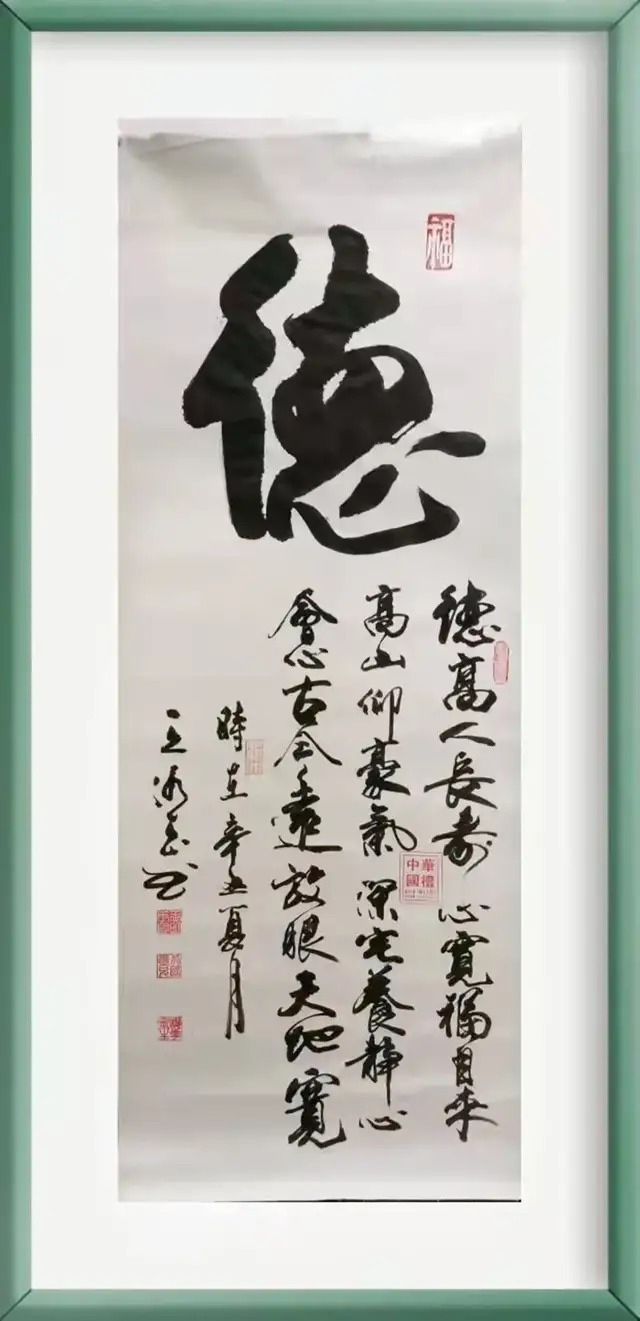 德
福
德高人長壽 心寬福自来
高山仰豪氣 深宅養靜心
會心古今遠 放眼天地寬
時在辛丑夏月
王 玉书
中國
華禮